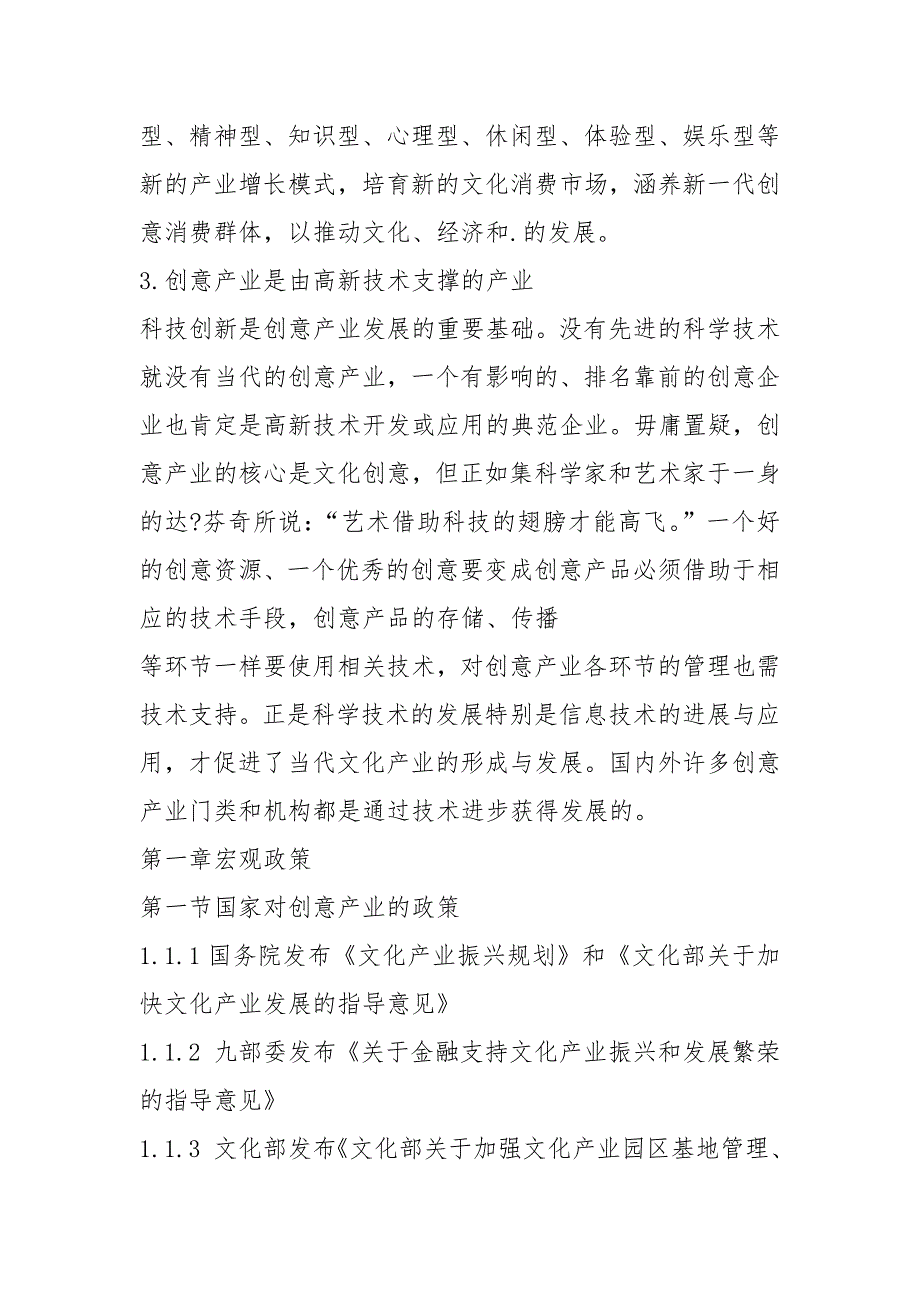 型、精神型、知识型、心理型、休闲型、体验型、娱乐型等
新的产业增长模式，培育新的文化消费市场，涵养新一代创
意消费群体，以推动文化、经济和.的发展。
3.创意产业是由高新技术支撑的产业
科技创新是创意产业发展的重要基础。没有先进的科学技术
就没有当代的创意产业，一个有影响的、排名靠前的创意企
业也肯定是高新技术开发或应用的典范企业。毋庸置疑，创
意产业的核心是文化创意，但正如集科学家和艺术家于一身
的达?芬奇所说：“艺术借助科技的翅膀才能高飞。”一个好
的创意资源、一个优秀的创意要变成创意产品必须借助于相
应的技术手段，创意产品的存储、传播
等环节一样要使用相关技术，对创意产业各环节的管理也需
技术支持。正是科学技术的发展特别是信息技术的进展与应
用，才促进了当代文化产业的形成与发展。国内外许多创意
产业门类和机构都是通过技术进步获得发展的。
第一章宏观政策
第一节国家对创意产业的政策
1.1.1国务院发布《文化产业振兴规划》和《文化部关于加
快文化产业发展的指导意见》
1.1.2 九部委发布《关于金融支持文化产业振兴和发展繁荣
的指导意见》
1.1.3 文化部发布《文化部关于加强文化产业园区基地管理、